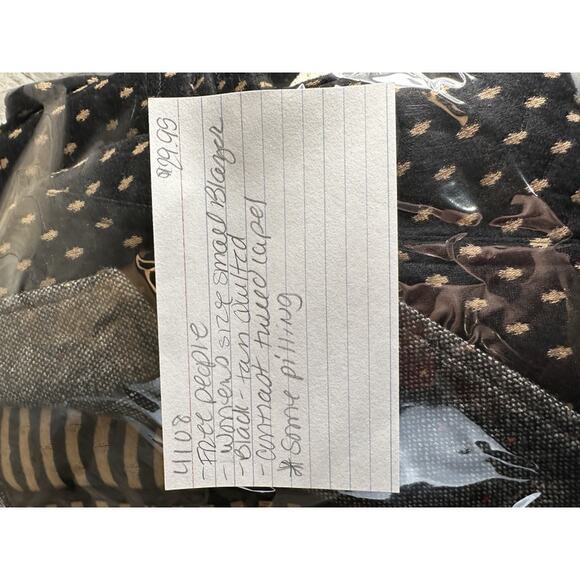 4108 $29.95
- Free people
- Womens size small Blazer
- Black - tan quilted
- contrast tweed lapel
* some pilling